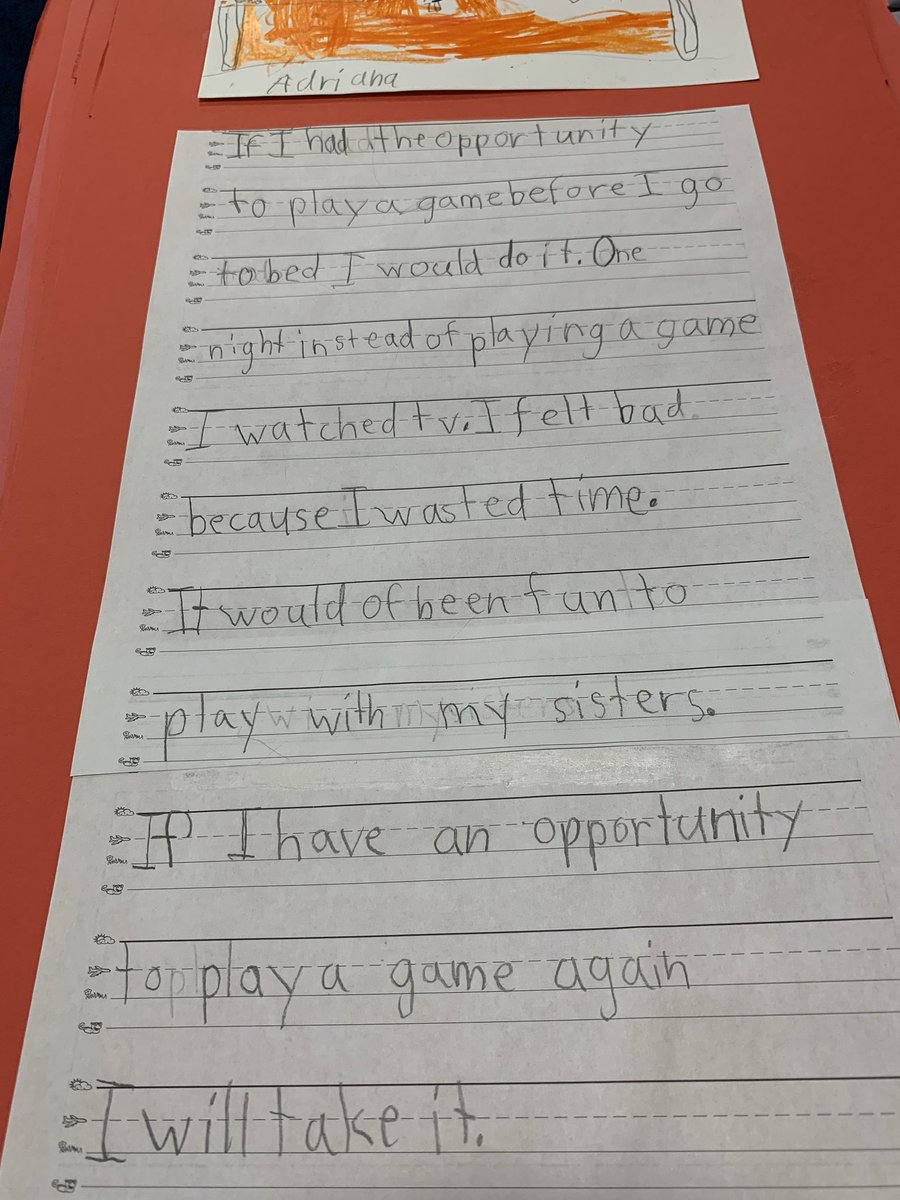 Adriana
If I had the opportunity
to play a game before I go
to bed I would do it. One
night instead of playing a game
I watched tv. I felt bad
because I wasted time.
It would of been fun to
play with my sisters.
If I have an opportunity
to play a game again
I will take it.